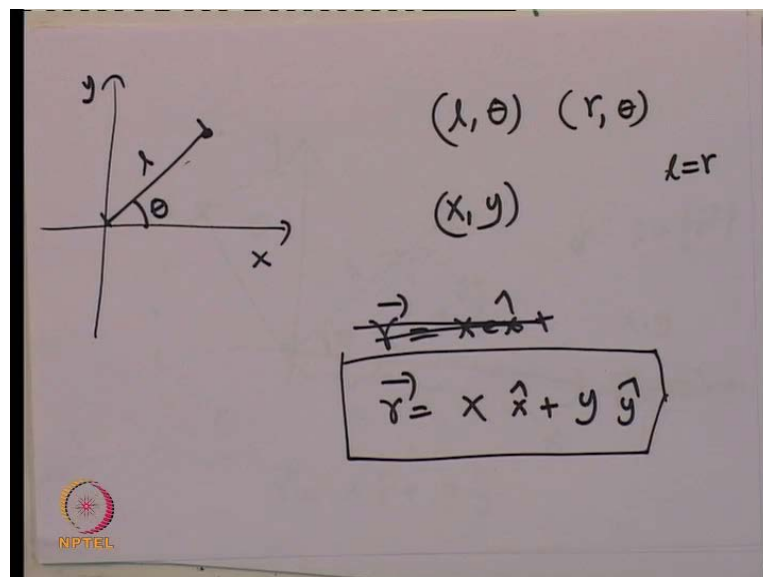 y
l
θ
x
(l, θ) (r, θ)
l=r
(x, y)
r⃗ = x x̂ + y ŷ
NPTEL